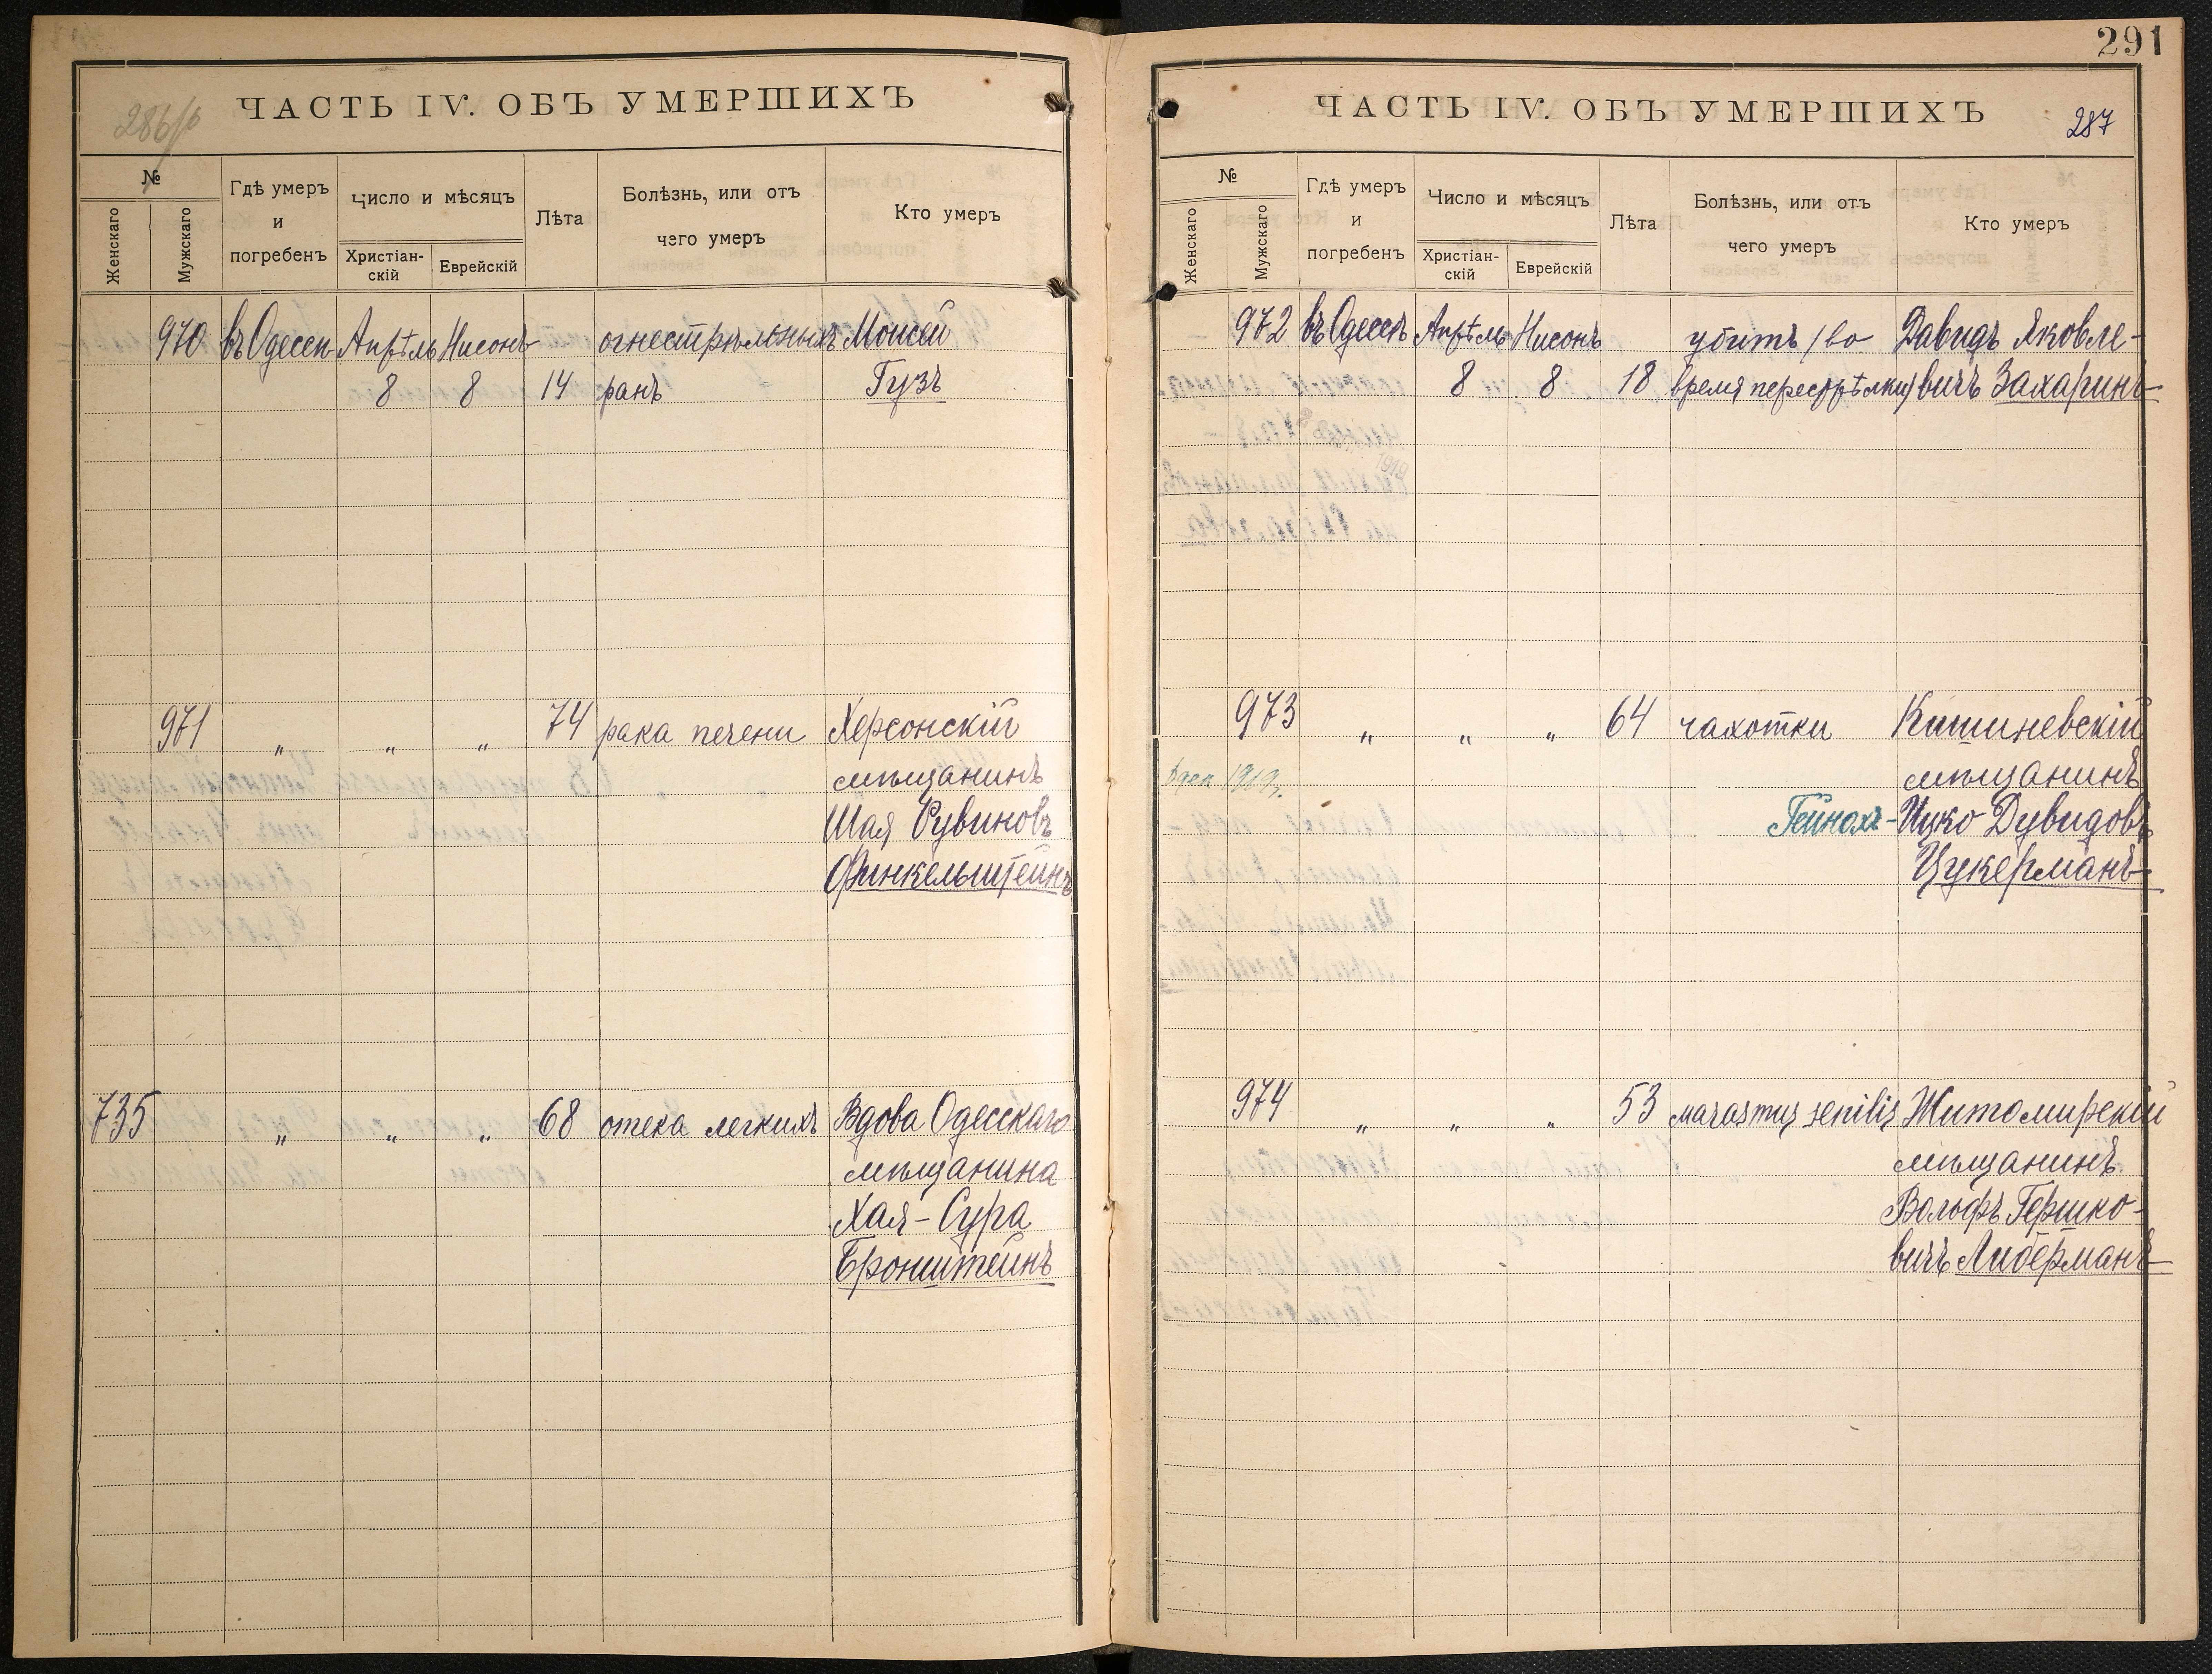 ЧАСТЬ IV. ОБЪ УМЕРШИХЪ
№
Женскаго
Мужскаго
Гдѣ умеръ и погребенъ
Число и мѣсяцъ
Христіан-скій
Еврейскій
Лѣта
Болѣзнь, или отъ чего умеръ
Кто умеръ
970 въ Одессѣ Апрѣль Нисонъ огнестрѣльныхъ Моисей
8 8 14 ранъ Гузъ
971 „ „ „ 74 рака печени Херсонскій
мѣщанинъ
Шая Рувиновъ
Финкельштейнъ
735 „ „ „ 68 отека легкихъ Вдова Одесскаго
мѣщанина
Хая-Сура
Бронштейнъ
291
ЧАСТЬ IV. ОБЪ УМЕРШИХЪ
287
№
Женскаго
Мужскаго
Гдѣ умеръ и погребенъ
Число и мѣсяцъ
Христіан-скій
Еврейскій
Лѣта
Болѣзнь, или отъ чего умеръ
Кто умеръ
972 въ Одессѣ Апрѣль Нисонъ убитъ (во Давидъ Яковле-
8 8 18 время перестрѣлки) вичъ Захаринъ
973 „ „ „ 64 чахотки Кишиневскій
1919г. мѣщанинъ
Гейнохъ-Ицко Дувидовъ
Цукерманъ
974 „ „ „ 53 marasmus senilis Житомирскій
мѣщанинъ
Вольфъ Гершко-
вичъ Либерманъ